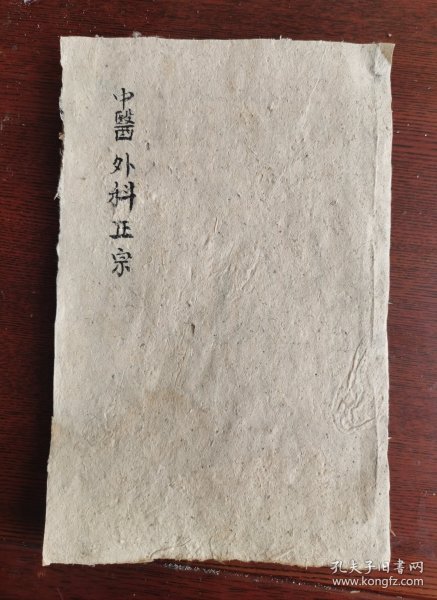 中醫外科正宗
孔夫子旧书网
www.kongfz.com